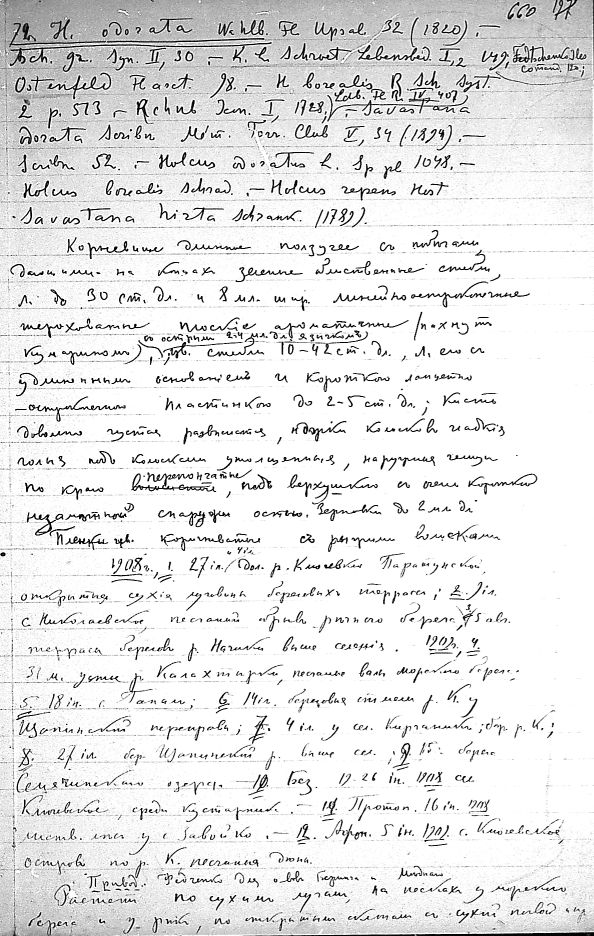 660 197
72. H. odorata Wahlb. Fl. Upsal. 32 (1820). —
Asch. gr. Syn. II, 30 — K. L. Schroet Lebensbed. I, 2
Ostenfeld Flaset. 98. — H borealis R Sch. Syst.
2 p. 513 — Rchnb Icon. I, 1728, Ldb. Fl. R. IV, 407, — Savastana
odorata Scribn Mém. Torr. Club V, 34 (1894). —
Scribn 52. — Holcus odoratus L. Sp pl 1048. —
Holcus borealis Schrad. — Holcus repens Host
Savastana hirta Schrank. (1789).
Корневище длинное ползучее съ побѣгами,
дающими на концахъ зеленые облиственные стебли,
л. до 30 ст. дл. и 8 мл. шир. линейноостроконечные
шероховатые плоскіе ароматичные (пахнутъ
кумариномъ), съ острымъ 2-4 мл. дл. язычкомъ, цв. стебли 10-42 ст. дл., л. его съ
удлиненнымъ основаніемъ и короткою ланцетно
-остроконечною пластинкою до 2-5 ст. дл.; кисть
довольно густая развѣсистая, ножки колосковъ гладкія
голыя подъ колосками утолщенныя, наружная чешуя
по краю перепончатые, подъ верхушкою съ очень короткою
незамѣтной снаружи остью. Зерновки до 2 мл дл
Пленки цв. коричневатыя съ рыжими волосками
1908 г., 1. 27 іл. и 4 іл. дол. р. Ключевки Паратунской,
открытыя сухія луговины береговыхъ террасъ; 2. 9 іл.
с Николаевское, песчаный обрывъ рѣчного берега, 3. 5 авг.
терраса береговъ р. Начики выше селенія. 1909, 4.
31 м. устье р. Калахтырки, песчаные валы морского берега;
5. 18 іл. с. Ганалы; 6. 14 іл. береговыя отмели р. К. у
Щапинской переправы; 7. 4 іл. у сел. Кирганикъ, бер. р. К.;
8. 27 іл. бер. Щапинской р. выше сел.; 9. 15. берега
Семячинскаго озера. — 10. Без. 12-26 іл. 1908 сел
Ключевское, среди кустарник. — 11. Протоп. 16 іл. 1908
листв. лѣсъ у с. Завойко. — 12. Афон. 5 іл. 1909. с. Ключевское,
островъ по р. К. песчаная дюна.
Привод. Федченко для о-вовъ Беринга и Мѣднаго
Растетъ по сухимъ лугамъ, на пескахъ у морского
берега и у рѣкъ, по открытымъ склонамъ съ сухой почвой